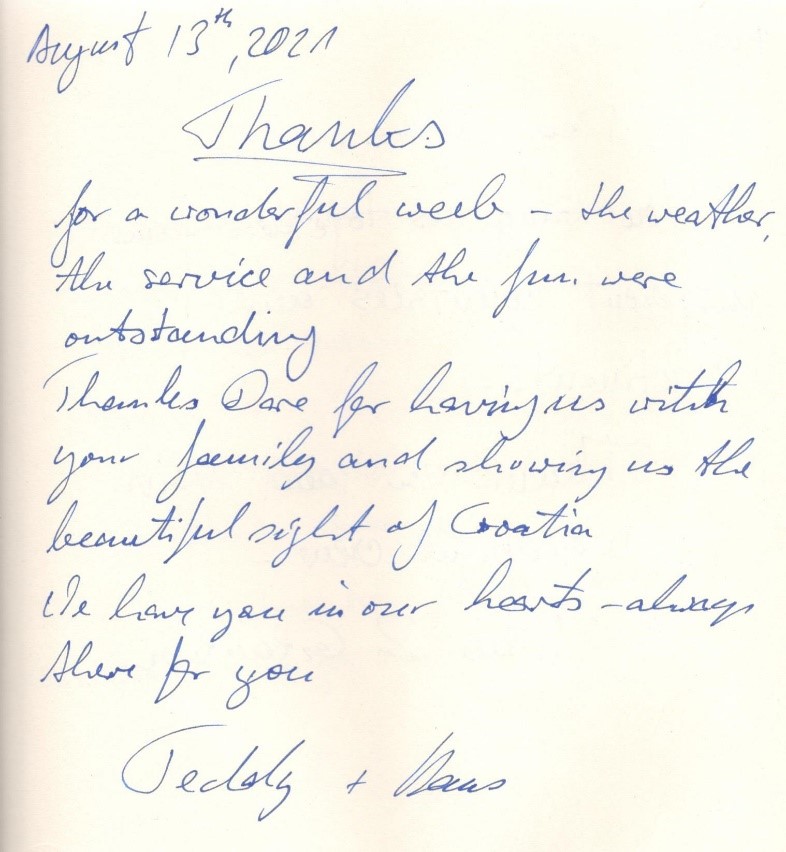 August 13th, 2021
Thanks
for a wonderful week - the weather,
the service and the fun were
outstanding
Thanks Dare for having us with
your family and showing us the
beautiful sight of Croatia
We have you in our hearts - always
there for you
Teddy + Klaus